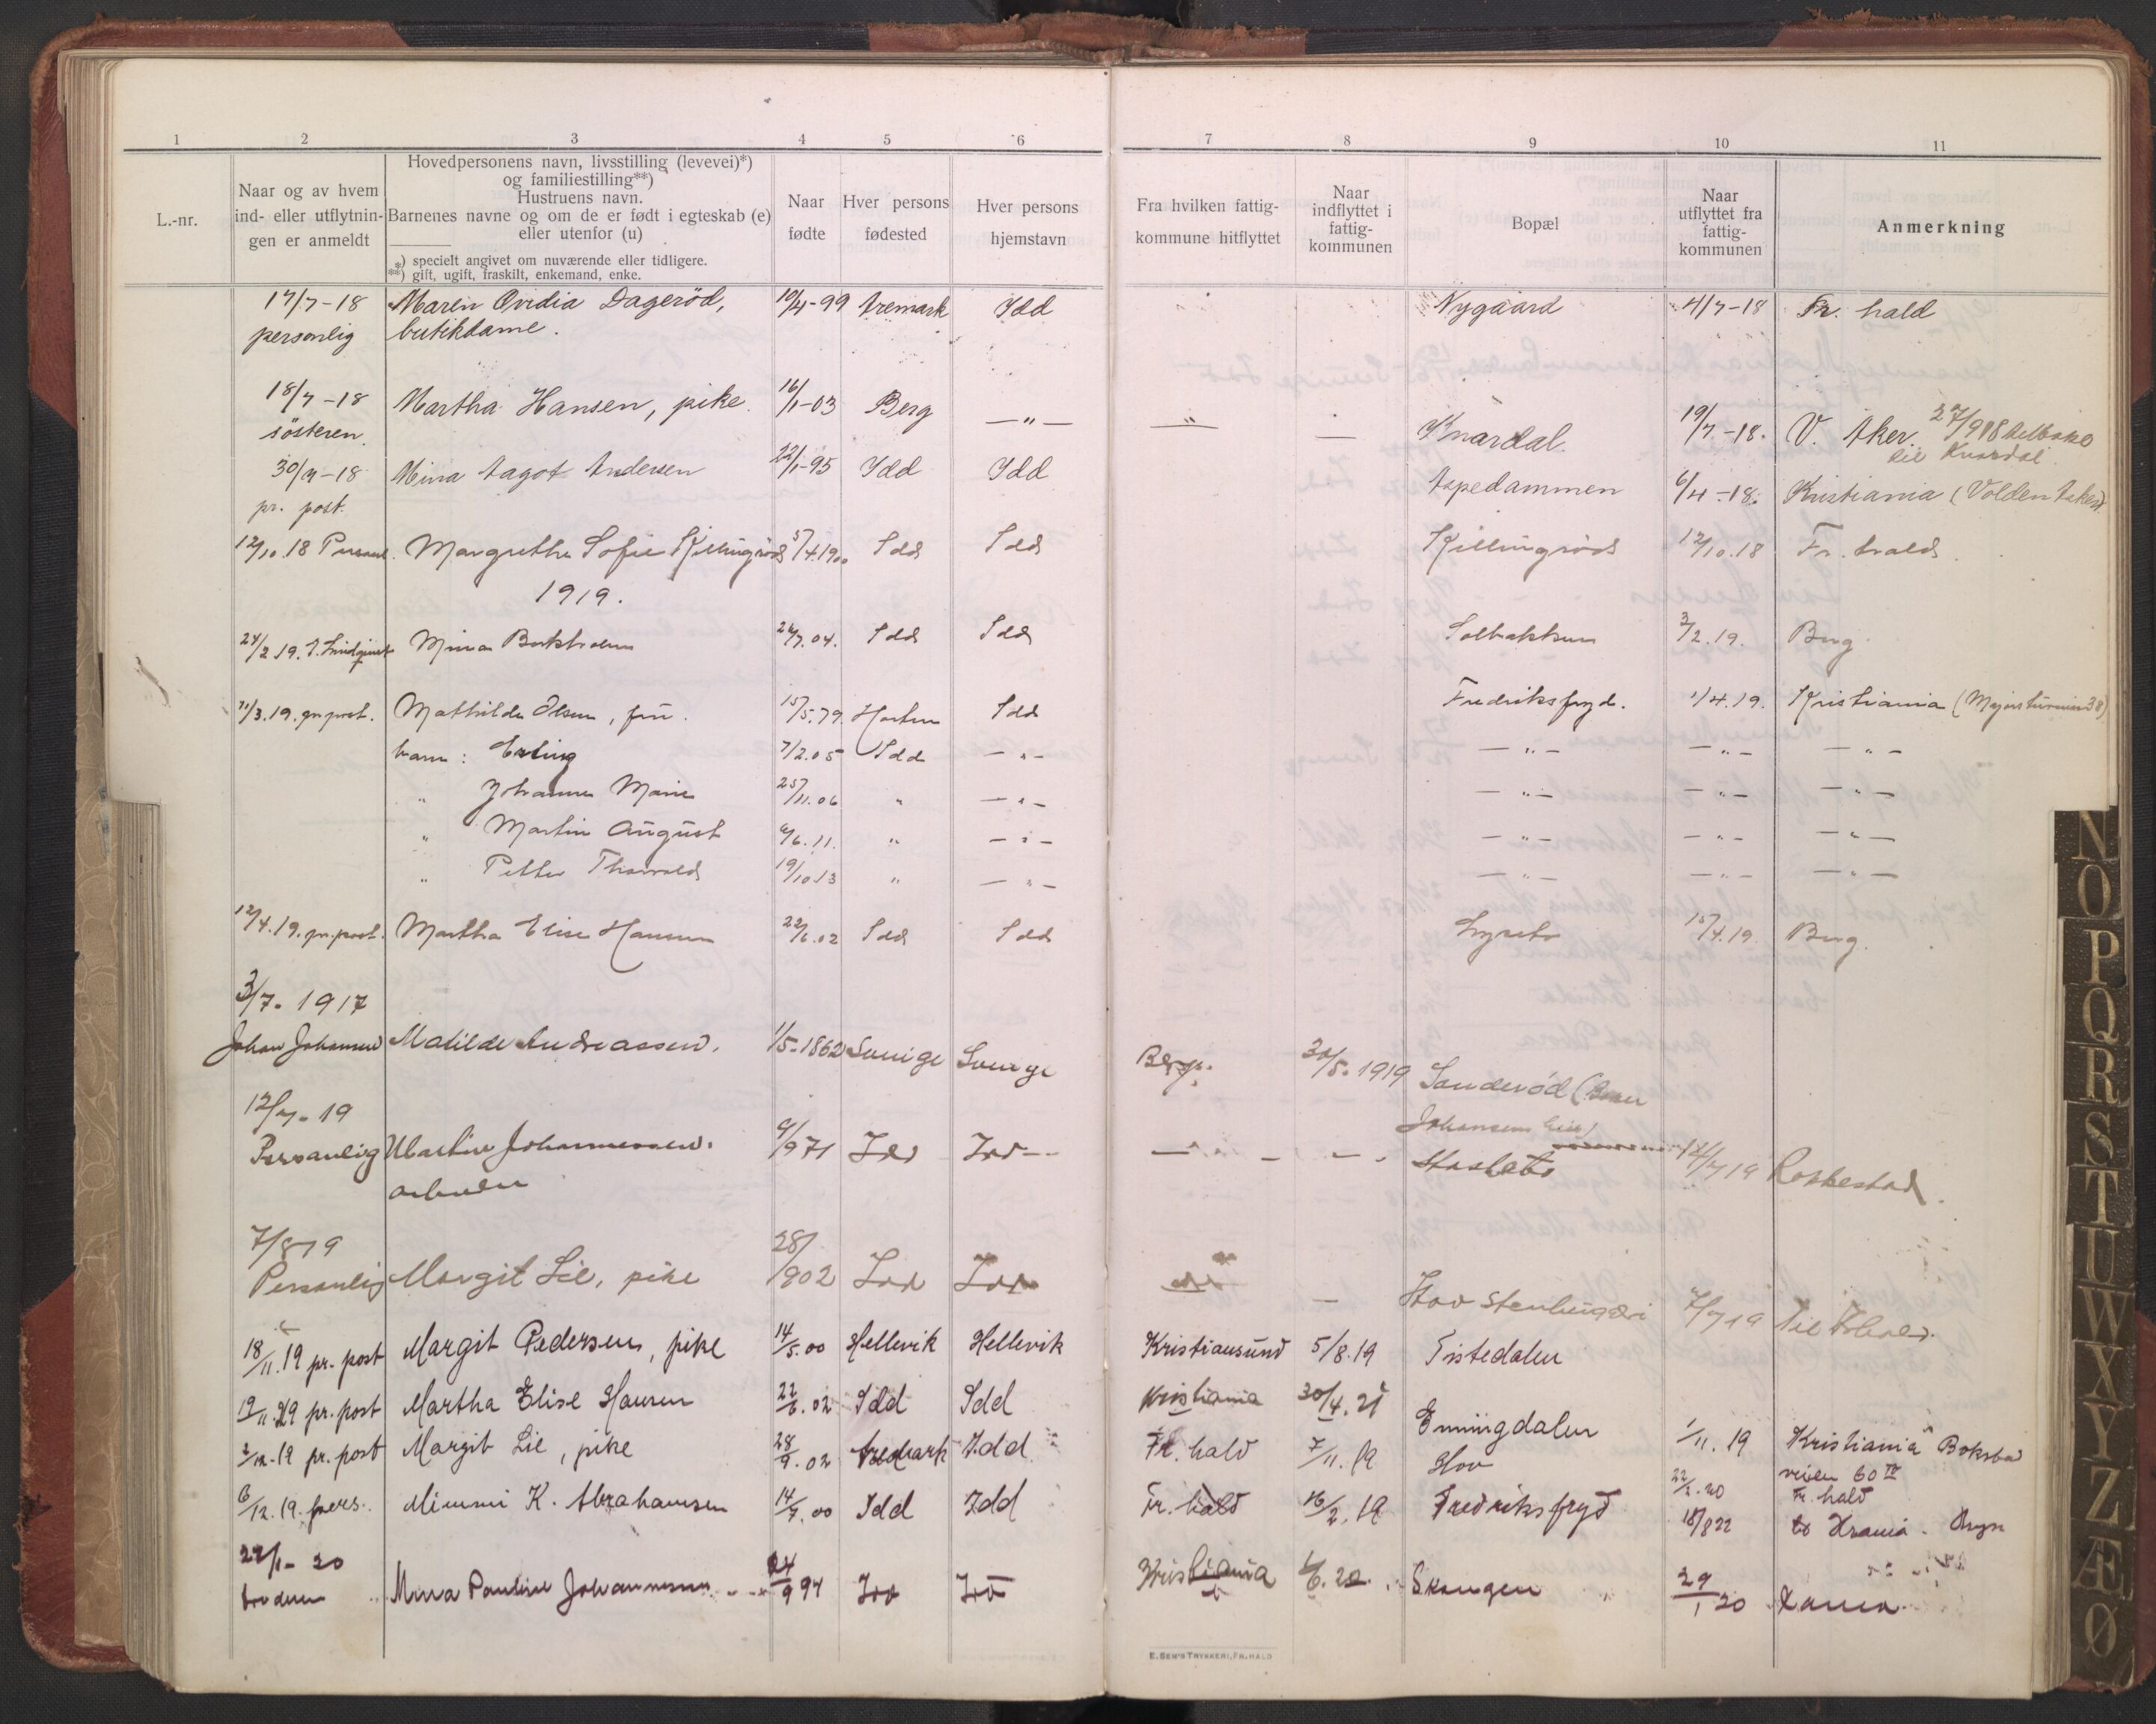 1 2 3 4 5 6 7 8 9 10 11
L.-nr.
Naar og av hvem
ind- eller utflytnin-
gen er anmeldt
Hovedpersonens navn, livsstilling (levevei)*)
og familiestilling**)
Hustruens navn.
Barnenes navne og om de er født i egteskab (e)
eller utenfor (u)
*) specielt angivet om nuværende eller tidligere.
**) gift, ugift, fraskilt, enkemand, enke.
Naar
fødte
Hver persons
fødested
Hver persons
hjemstavn
Fra hvilken fattig-
kommune hitflyttet
Naar
indflyttet i
fattig-
kommunen
Bopæl
Naar
utflyttet fra
fattig-
kommunen
Anmerkning
17/7-18 Maren Ovidia Dagerød, 10/4-99 Aremark Idd Nygaard 4/7-18 Fr. hald
personlig butikdame.
18/7-18 Martha Hansen, pike 16/1-03 Berg —"— —"— — Knardal. 19/7-18. V. Aker. 27/918 tilbake
søsteren. til Knardal
30/9-18 Mina Aagot Andersen 22/1-95 Idd Idd Aspedammen 6/4-18. Kristiania (Volden Aker)
pr. post.
12/10.18 Personl. Margrethe Sofie Killingrød 5/4.1900 Idd Idd Killingrød 12/10.18 Fr. hald.
1919.
24/2.19. J. Lindquist Mina 24/7.04. Idd Idd Solbakken 3/2.19. Berg
11/3.19. pr. post. Mathilde Olsen, fru. 15/5.79. Horten Idd Fredriksfryd. 1/4.19. Kristiania
barn: Erling 7/2.05 Idd —"— —"— —"— —"—
" Johanne Marie 25/11.06 " —"— —"— —"— —"—
" Martin August 9/6.11. " —"— —"— —"— —"—
" Petter Thorvald 19/10.13 " —"— —"— —"— —"—
12/4.19. pr. post. Martha Elise Hansen 22/6.02 Idd Idd 15/4.19. Berg.
3/7-1917
Johan Johansen Matilde Andreassen. 1/5-1862 Sverige Sverige Berg. 30/5.1919 Sanderød
Johansens
12/7-19
Personlig Martin Johannessen. 9/971 Idd Idd — — 12/719
arbeider
7/819
Personlig Margit Lie, pike 28/902 Idd Idd — Hov 7/719 Til
18/11.19 pr. post Margit Pedersen, pike 14/5.00 Hellevik Hellevik Kristiansund 5/8.19 Tistedalen
19/11.19 pr. post Martha Elise Hansen 22/6.02 Idd Idd Kristiania 30/4.21 Enningdalen 1/11.19 Kristiania
2/12.19 pr. post Margit Lie, pike 28/9.02 Aremark Idd Fr. hald 7/11.19 Hov 22/2.20 Fr. hald
6/12.19. pers. Mimmi K. Abrahamsen 14/7.00 Idd Idd Fr. hald 16/2.19 Fredriksfryd 18/822 Krania. Bryn
29/1-20
broderen Mina Pauline Johannesen 24/9 94 Idd Idd Kristiania Skaugen 29/1 20 Xania
E. SEM'S TRYKKERI, FR.HALD
N
O
P
Q
R
S
T
U
W
X
Y
Z
Æ
Ø